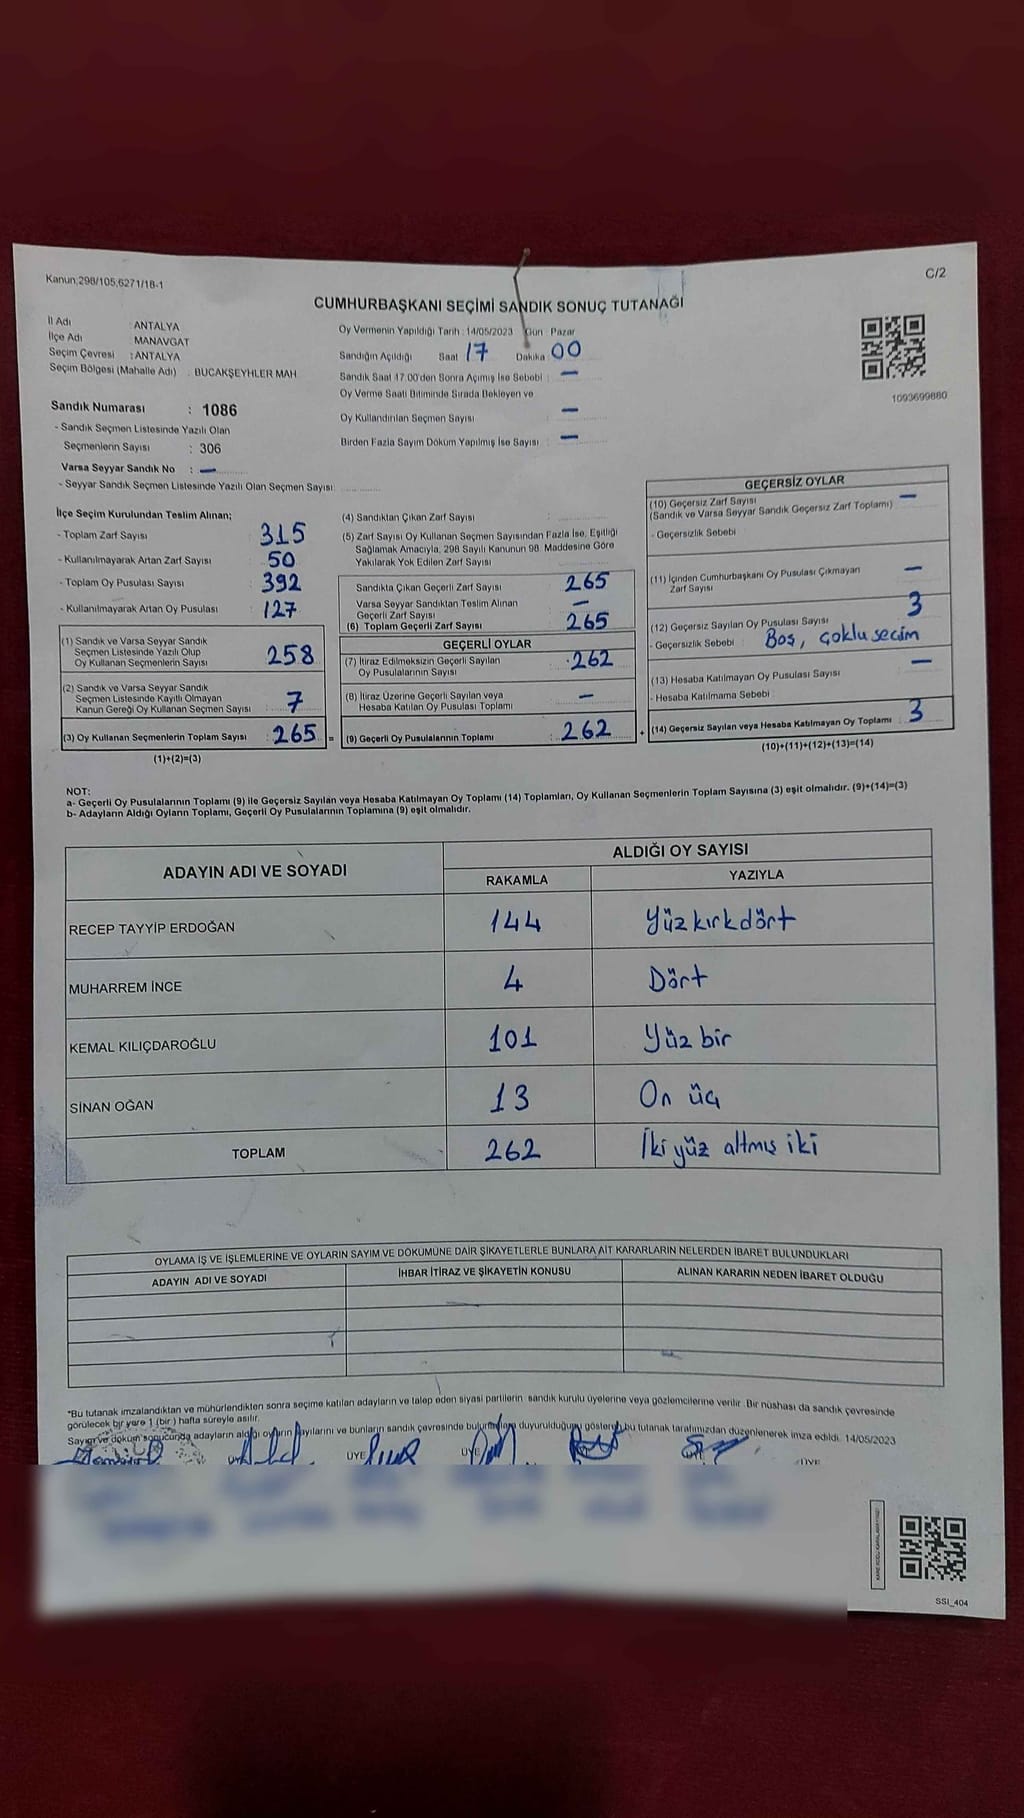 Kanun;298/105;6271/18-1
C/2
CUMHURBAŞKANI SEÇİMİ SANDIK SONUÇ TUTANAĞI
İl Adı : ANTALYA
İlçe Adı : MANAVGAT
Seçim Çevresi : ANTALYA
Seçim Bölgesi (Mahalle Adı) : BUCAKŞEYHLER MAH
Oy Vermenin Yapıldığı Tarih : 14/05/2023 Gün : Pazar
Sandığın Açıldığı Saat 17 Dakika 00
Sandık Saat 17.00'den Sonra Açımış İse Sebebi : —
Oy Verme Saati Bitiminde Sırada Bekleyen ve
Oy Kullandırılan Seçmen Sayısı : —
Birden Fazla Sayım Döküm Yapılmış İse Sayısı : —
1093699880
Sandık Numarası : 1086
- Sandık Seçmen Listesinde Yazılı Olan
Seçmenlerin Sayısı : 306
Varsa Seyyar Sandık No : —
- Seyyar Sandık Seçmen Listesinde Yazılı Olan Seçmen Sayısı :
İlçe Seçim Kurulundan Teslim Alınan;
- Toplam Zarf Sayısı : 315
- Kullanılmayarak Artan Zarf Sayısı : 50
- Toplam Oy Pusulası Sayısı : 392
- Kullanılmayarak Artan Oy Pusulası : 127
(1) Sandık ve Varsa Seyyar Sandık
Seçmen Listesinde Yazılı Olup
Oy Kullanan Seçmenlerin Sayısı : 258
(2) Sandık ve Varsa Seyyar Sandık
Seçmen Listesinde Kayıtlı Olmayan
Kanun Gereği Oy Kullanan Seçmen Sayısı : 7
(3) Oy Kullanan Seçmenlerin Toplam Sayısı : 265 =
(1)+(2)=(3)
(4) Sandıktan Çıkan Zarf Sayısı :
(5) Zarf Sayısı Oy Kullanan Seçmen Sayısından Fazla İse, Eşitliği
Sağlamak Amacıyla, 298 Sayılı Kanunun 98. Maddesine Göre
Yakılarak Yok Edilen Zarf Sayısı :
Sandıkta Çıkan Geçerli Zarf Sayısı : 265
Varsa Seyyar Sandıktan Teslim Alınan
Geçerli Zarf Sayısı : —
(6) Toplam Geçerli Zarf Sayısı : 265
GEÇERLİ OYLAR
(7) İtiraz Edilmeksizin Geçerli Sayılan
Oy Pusulalarının Sayısı : 262
(8) İtiraz Üzerine Geçerli Sayılan veya
Hesaba Katılan Oy Pusulası Toplamı : —
(9) Geçerli Oy Pusulalarının Toplamı : 262 +
GEÇERSİZ OYLAR
(10) Geçersiz Zarf Sayısı : —
(Sandık ve Varsa Seyyar Sandık Geçersiz Zarf Toplamı)
- Geçersizlik Sebebi
(11) İçinden Cumhurbaşkanı Oy Pusulası Çıkmayan
Zarf Sayısı : —
(12) Geçersiz Sayılan Oy Pusulası Sayısı : 3
- Geçersizlik Sebebi : Boş, çoklu seçim
(13) Hesaba Katılmayan Oy Pusulası Sayısı : —
- Hesaba Katılmama Sebebi :
(14) Geçersiz Sayılan veya Hesaba Katılmayan Oy Toplamı : 3
(10)+(11)+(12)+(13)=(14)
NOT:
a- Geçerli Oy Pusulalarının Toplamı (9) ile Geçersiz Sayılan veya Hesaba Katılmayan Oy Toplamı (14) Toplamları, Oy Kullanan Seçmenlerin Toplam Sayısına (3) eşit olmalıdır. (9)+(14)=(3)
b- Adayların Aldığı Oyların Toplamı, Geçerli Oy Pusulalarının Toplamına (9) eşit olmalıdır.
ADAYIN ADI VE SOYADI ALDIĞI OY SAYISI
RAKAMLA YAZIYLA
RECEP TAYYİP ERDOĞAN 144 Yüzkırkdört
MUHARREM İNCE 4 Dört
KEMAL KILIÇDAROĞLU 101 Yüz bir
SİNAN OĞAN 13 On üç
TOPLAM 262 İki yüz altmış iki
OYLAMA İŞ VE İŞLEMLERİNE VE OYLARIN SAYIM VE DÖKÜMÜNE DAİR ŞİKAYETLERLE BUNLARA AİT KARARLARIN NELERDEN İBARET BULUNDUKLARI
ADAYIN ADI VE SOYADI İHBAR İTİRAZ VE ŞİKAYETİN KONUSU ALINAN KARARIN NEDEN İBARET OLDUĞU
*Bu tutanak imzalandıktan ve mühürlendikten sonra seçime katılan adayların ve talep eden siyasi partilerin sandık kurulu üyelerine veya gözlemcilerine verilir. Bir nüshası da sandık çevresinde
görülecek bir yere 1 (bir) hafta süreyle asılır.
Sayım ve döküm sonucunda adayların aldığı oyların sayılarını ve bunların sandık çevresinde bulunanlara duyurulduğunu gösteren bu tutanak tarafımızdan düzenlenerek imza edildi. 14/05/2023
ÜYE ÜYE ÜYE
SSI_404